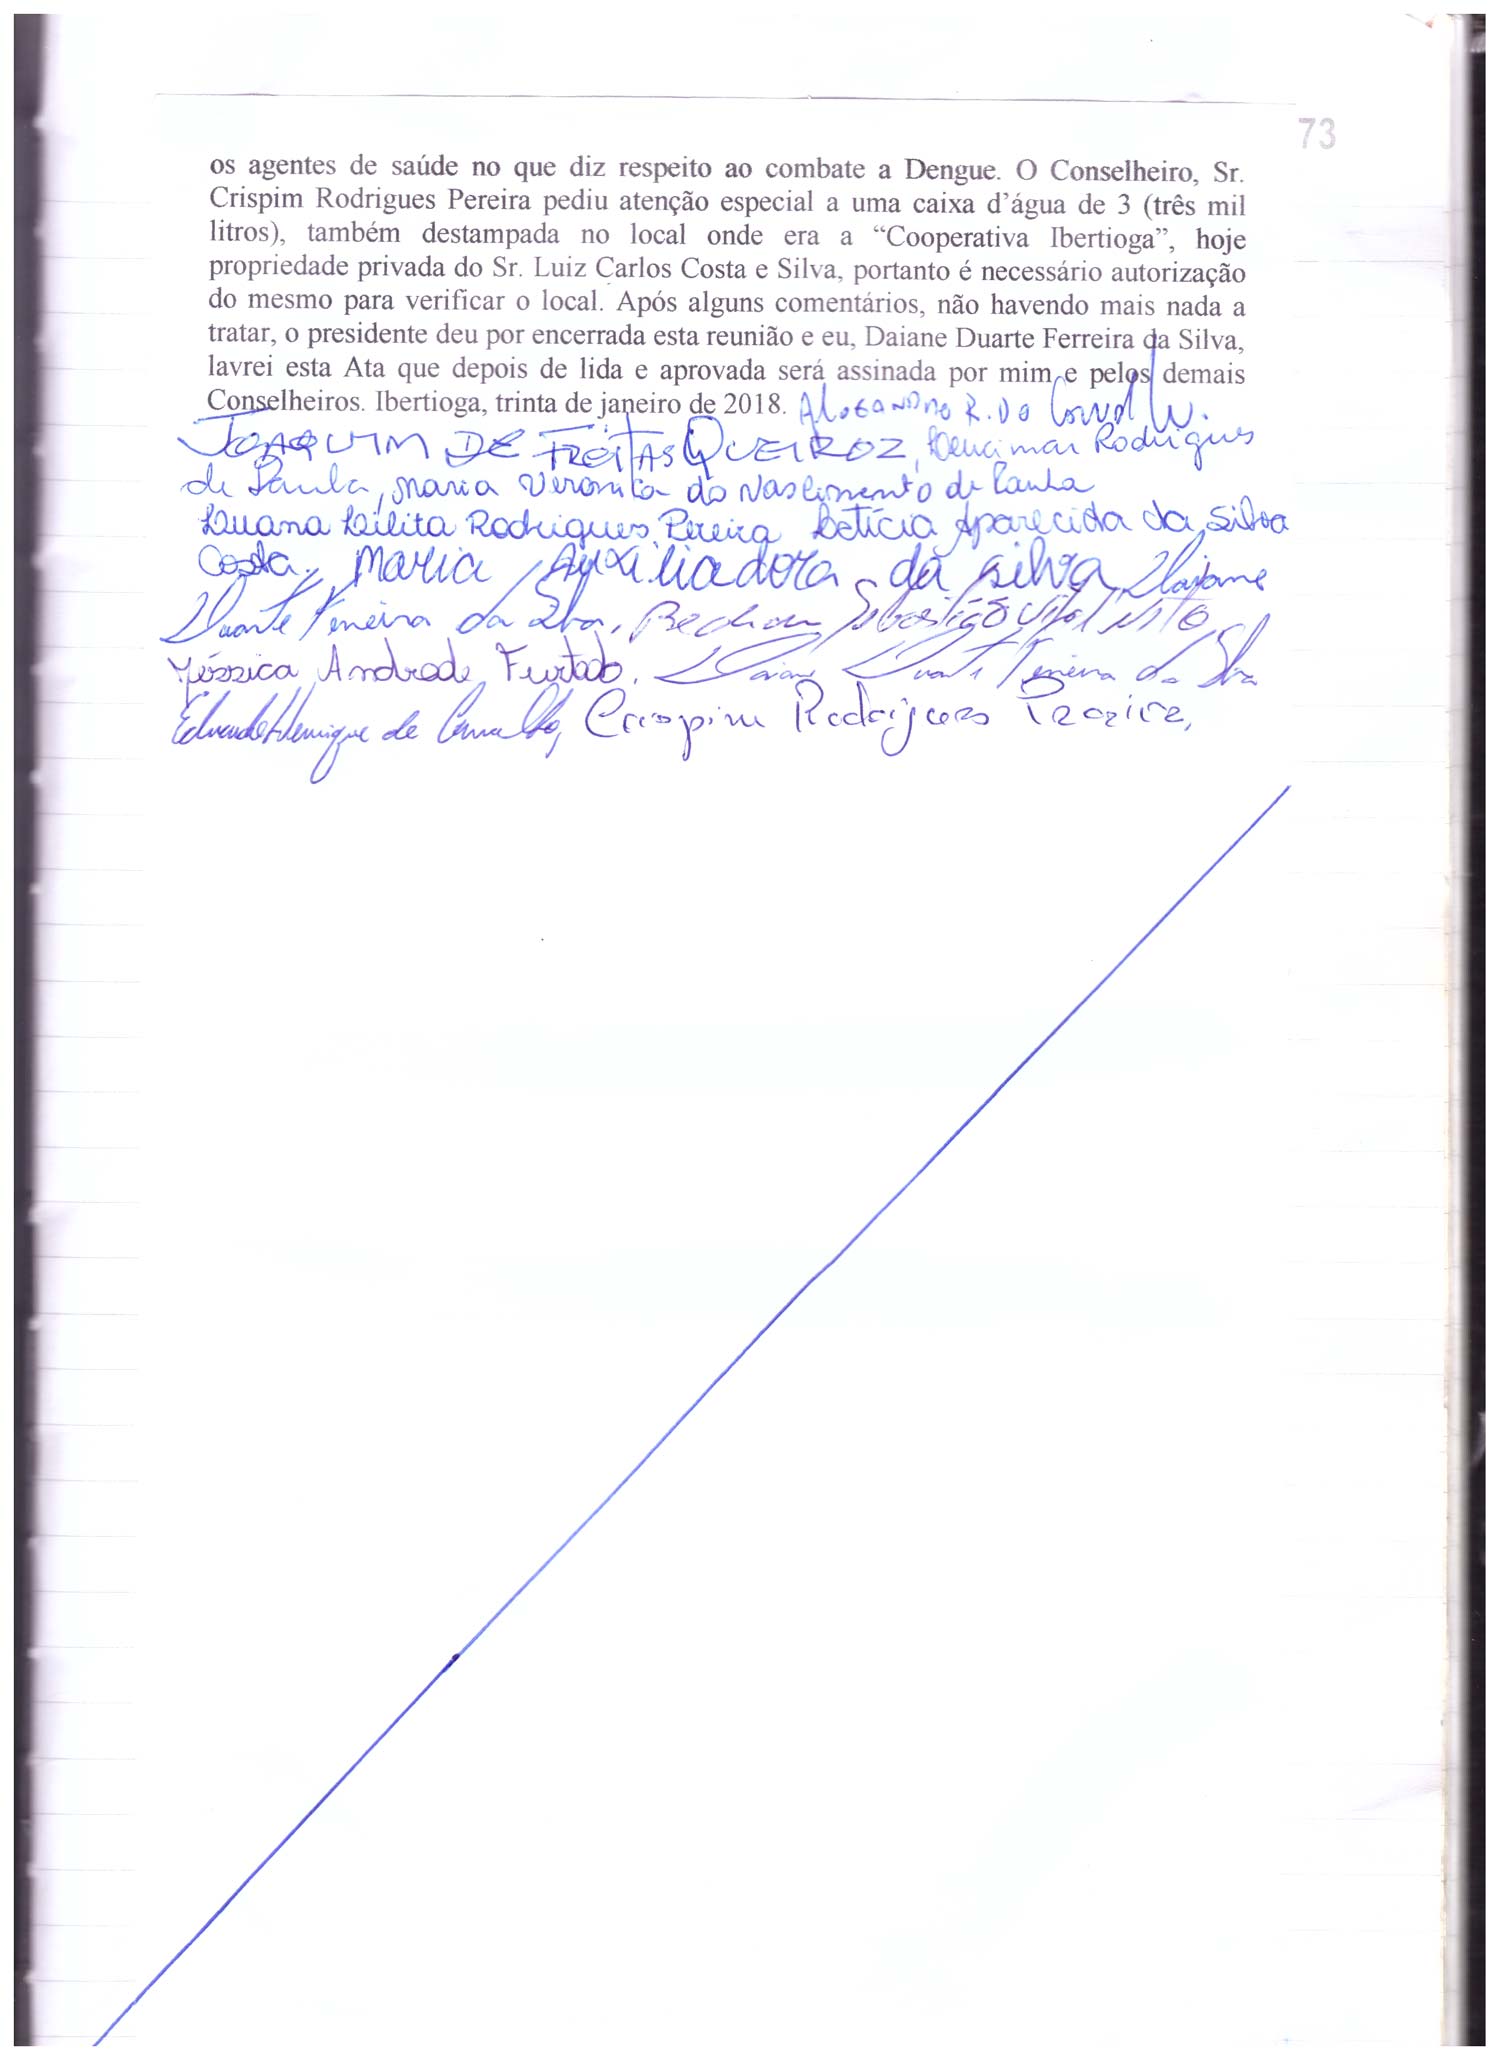 73
os agentes de saúde no que diz respeito ao combate a Dengue. O Conselheiro, Sr.
Crispim Rodrigues Pereira pediu atenção especial a uma caixa d’água de 3 (três mil
litros), também destampada no local onde era a “Cooperativa Ibertioga”, hoje
propriedade privada do Sr. Luiz Carlos Costa e Silva, portanto é necessário autorização
do mesmo para verificar o local. Após alguns comentários, não havendo mais nada a
tratar, o presidente deu por encerrada esta reunião e eu, Daiane Duarte Ferreira da Silva,
lavrei esta Ata que depois de lida e aprovada será assinada por mim e pelos demais
Conselheiros. Ibertioga, trinta de janeiro de 2018. R. de Carvalho.
JOAQUIM DE FREITAS QUEIROZ, Rodrigues
de Paula, Maria Veronica do Nascimento de Paula
Luana Rodrigues Pereira Letícia Aparecida da Silva
Costa, Maria Auxiliadora da Silva, Daiane
Duarte Ferreira da Silva, Sebastião
Jéssica Andrade Furtado, Daiane Duarte Ferreira da Silva
Eduardo Henrique de Carvalho, Crispim Rodrigues Pereira,